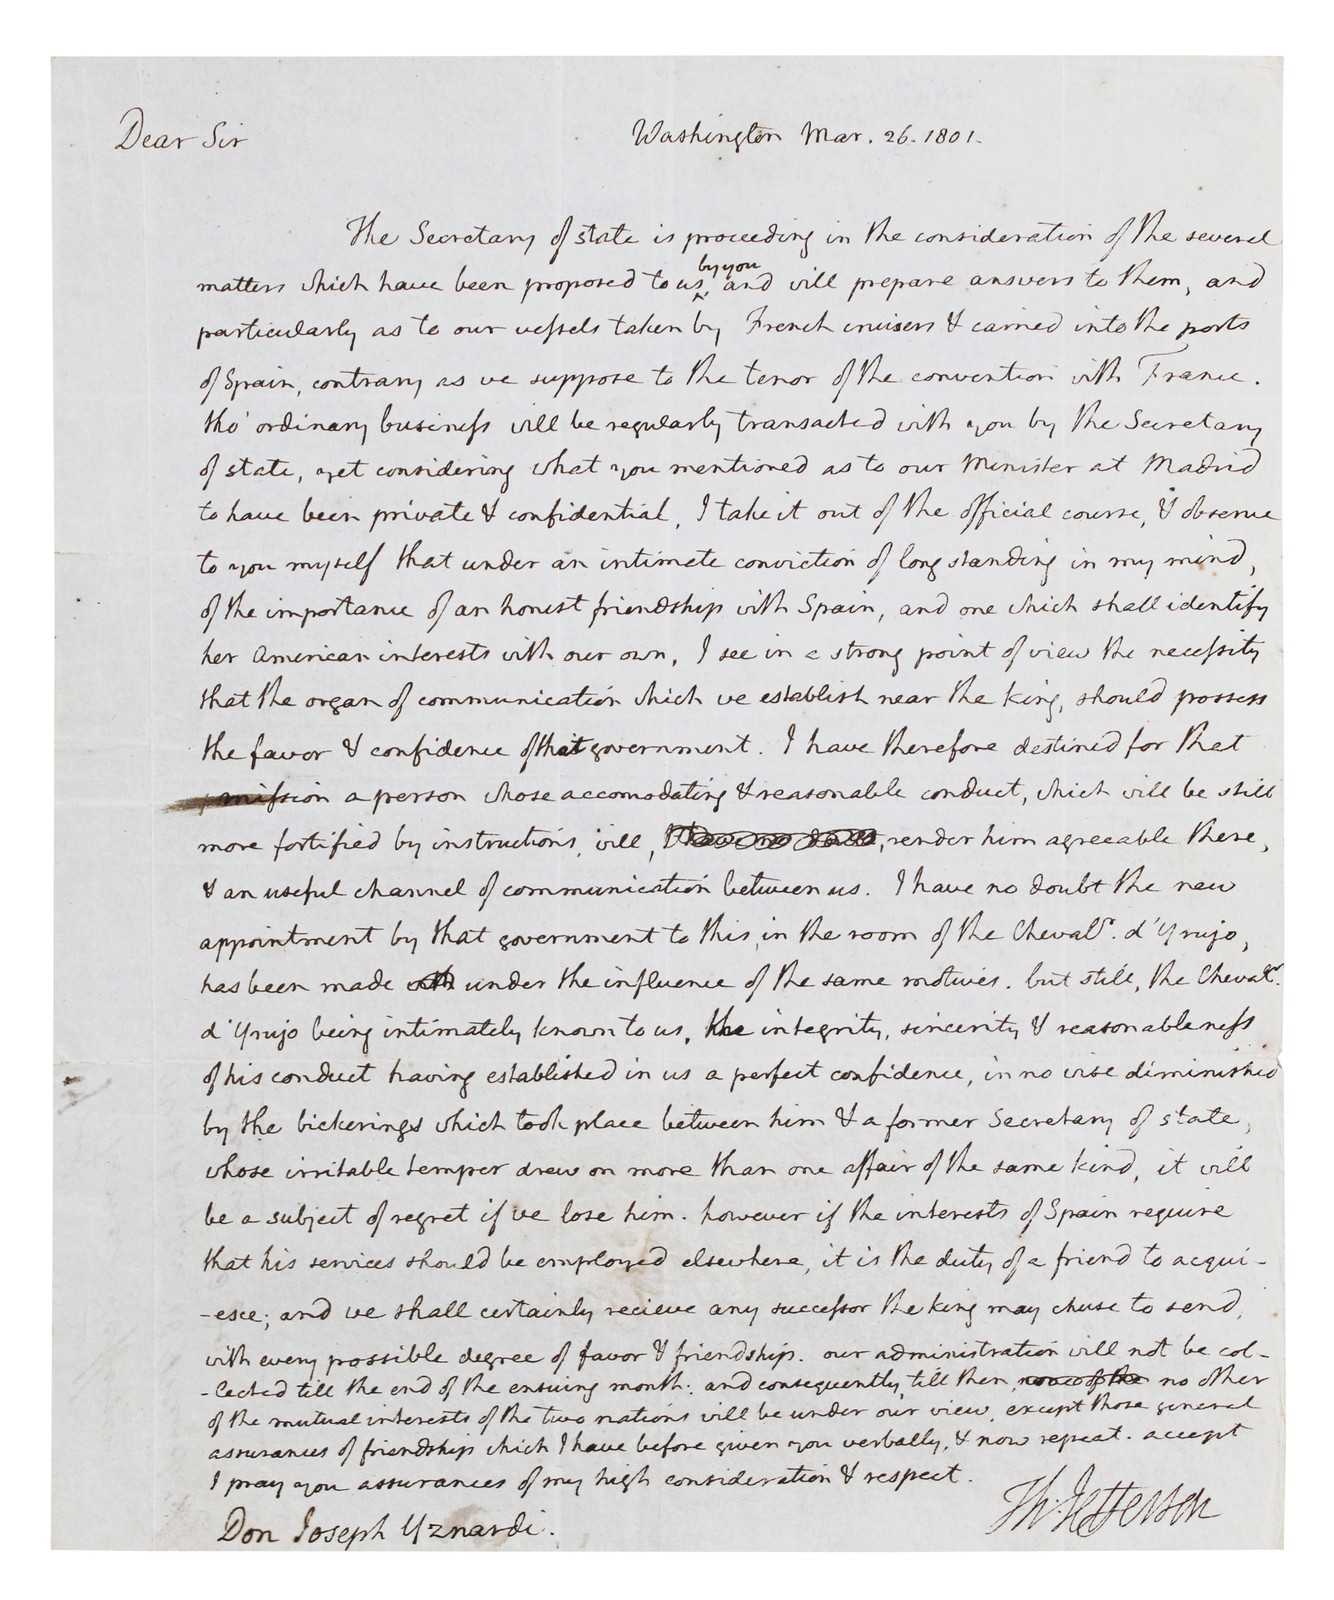 Dear Sir Washington Mar. 26. 1801.
The Secretary of state is proceeding in the consideration of the several
by you
matters which have been proposed to us, and will prepare answers to them, and
particularly as to our vessels taken by French cruisers & carried into the ports
of Spain, contrary as we suppose to the tenor of the convention with France.
tho' ordinary business will be regularly transacted with you by the Secretary
of state, yet considering what you mentioned as to our Minister at Madrid
to have been private & confidential, I take it out of the official course, & observe
to you myself that under an intimate conviction of long standing in my mind,
of the importance of an honest friendship with Spain, and one which shall identify
her American interests with our own, I see in a strong point of view the necessity
that the organ of communication which we establish near the King, should possess
the favor & confidence of that government. I have therefore destined for that
mission a person whose accomodating & reasonable conduct, which will be still
more fortified by instructions, will, I have no doubt, render him agreeable there,
& an useful channel of communication between us. I have no doubt the new
appointment by that government to this, in the room of the Chevalr. d'Yrujo,
has been made under the influence of the same motives. but still, the Chevalr.
d'Yrujo being intimately known to us, the integrity, sincerity & reasonableness
of his conduct having established in us a perfect confidence, in no wise diminished
by the bickerings which took place between him & a former Secretary of state,
whose irritable temper drew on more than one affair of the same kind, it will
be a subject of regret if we lose him. however if the interests of Spain require
that his services should be employed elsewhere, it is the duty of a friend to acqui-
-esce; and we shall certainly recieve any successor the King may chuse to send,
with every possible degree of favor & friendship. our administration will not be col-
-lected till the end of the ensuing month; and consequently, till then, none of the no other
of the mutual interests of the two nations will be under our view, except those general
assurances of friendship which I have before given you verbally, & now repeat. accept
I pray you assurances of my high consideration & respect.
Th: Jefferson
Don Joseph Yznardi.